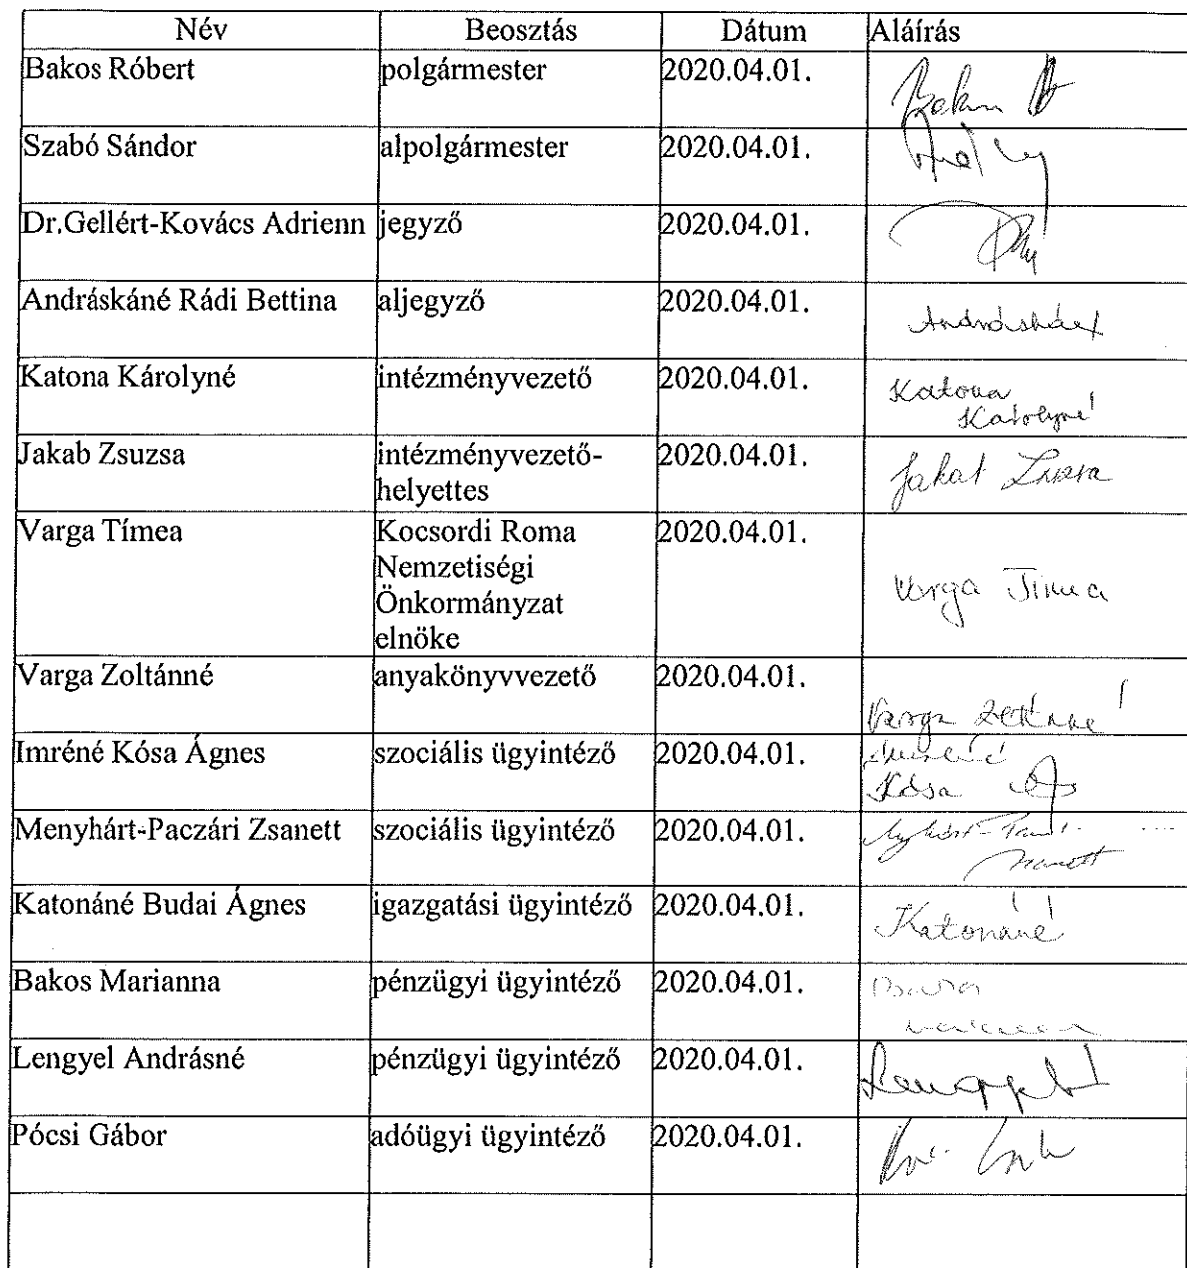 Név Beosztás Dátum Aláírás
Bakos Róbert polgármester 2020.04.01.
Szabó Sándor alpolgármester 2020.04.01.
Dr.Gellért-Kovács Adrienn jegyző 2020.04.01.
Andráskáné Rádi Bettina aljegyző 2020.04.01.
Katona Károlyné intézményvezető 2020.04.01. Katona
Károlyné
Jakab Zsuzsa intézményvezető- 2020.04.01. Jakab Zsuzsa
helyettes
Varga Tímea Kocsordi Roma 2020.04.01.
Nemzetiségi
Önkormányzat Varga Tímea
elnöke
Varga Zoltánné anyakönyvvezető 2020.04.01.
Varga Zoltánné
Imréné Kósa Ágnes szociális ügyintéző 2020.04.01. Imréné
Kósa
Menyhárt-Paczári Zsanett szociális ügyintéző 2020.04.01.
Katonáné Budai Ágnes igazgatási ügyintéző 2020.04.01. Katonáné
Bakos Marianna pénzügyi ügyintéző 2020.04.01.
Lengyel Andrásné pénzügyi ügyintéző 2020.04.01.
Pócsi Gábor adóügyi ügyintéző 2020.04.01.